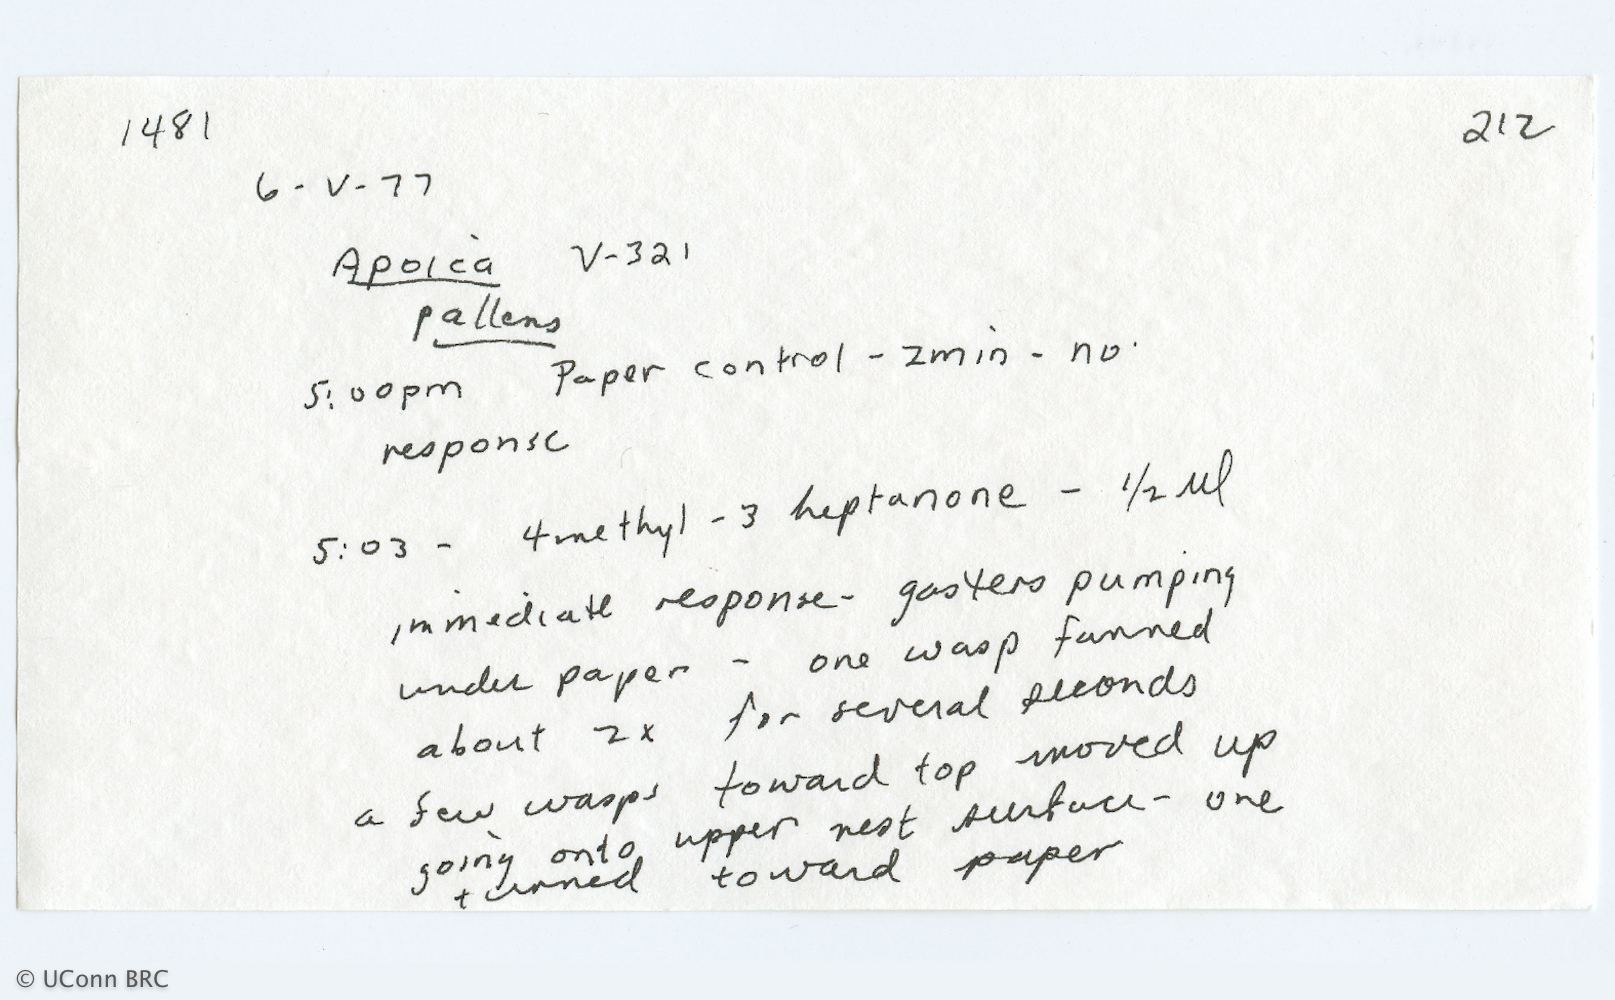 1481 212
6-V-77
Apoica V-321
pallens
5:00pm Paper control - 2min - no
response
5:03 - 4methyl-3 heptanone - 1/2 µl
immediate response - gasters pumping
under paper - one wasp fanned
about 2x for several seconds
a few wasps toward top moved up
going onto upper nest surface - one
turned toward paper
© UConn BRC